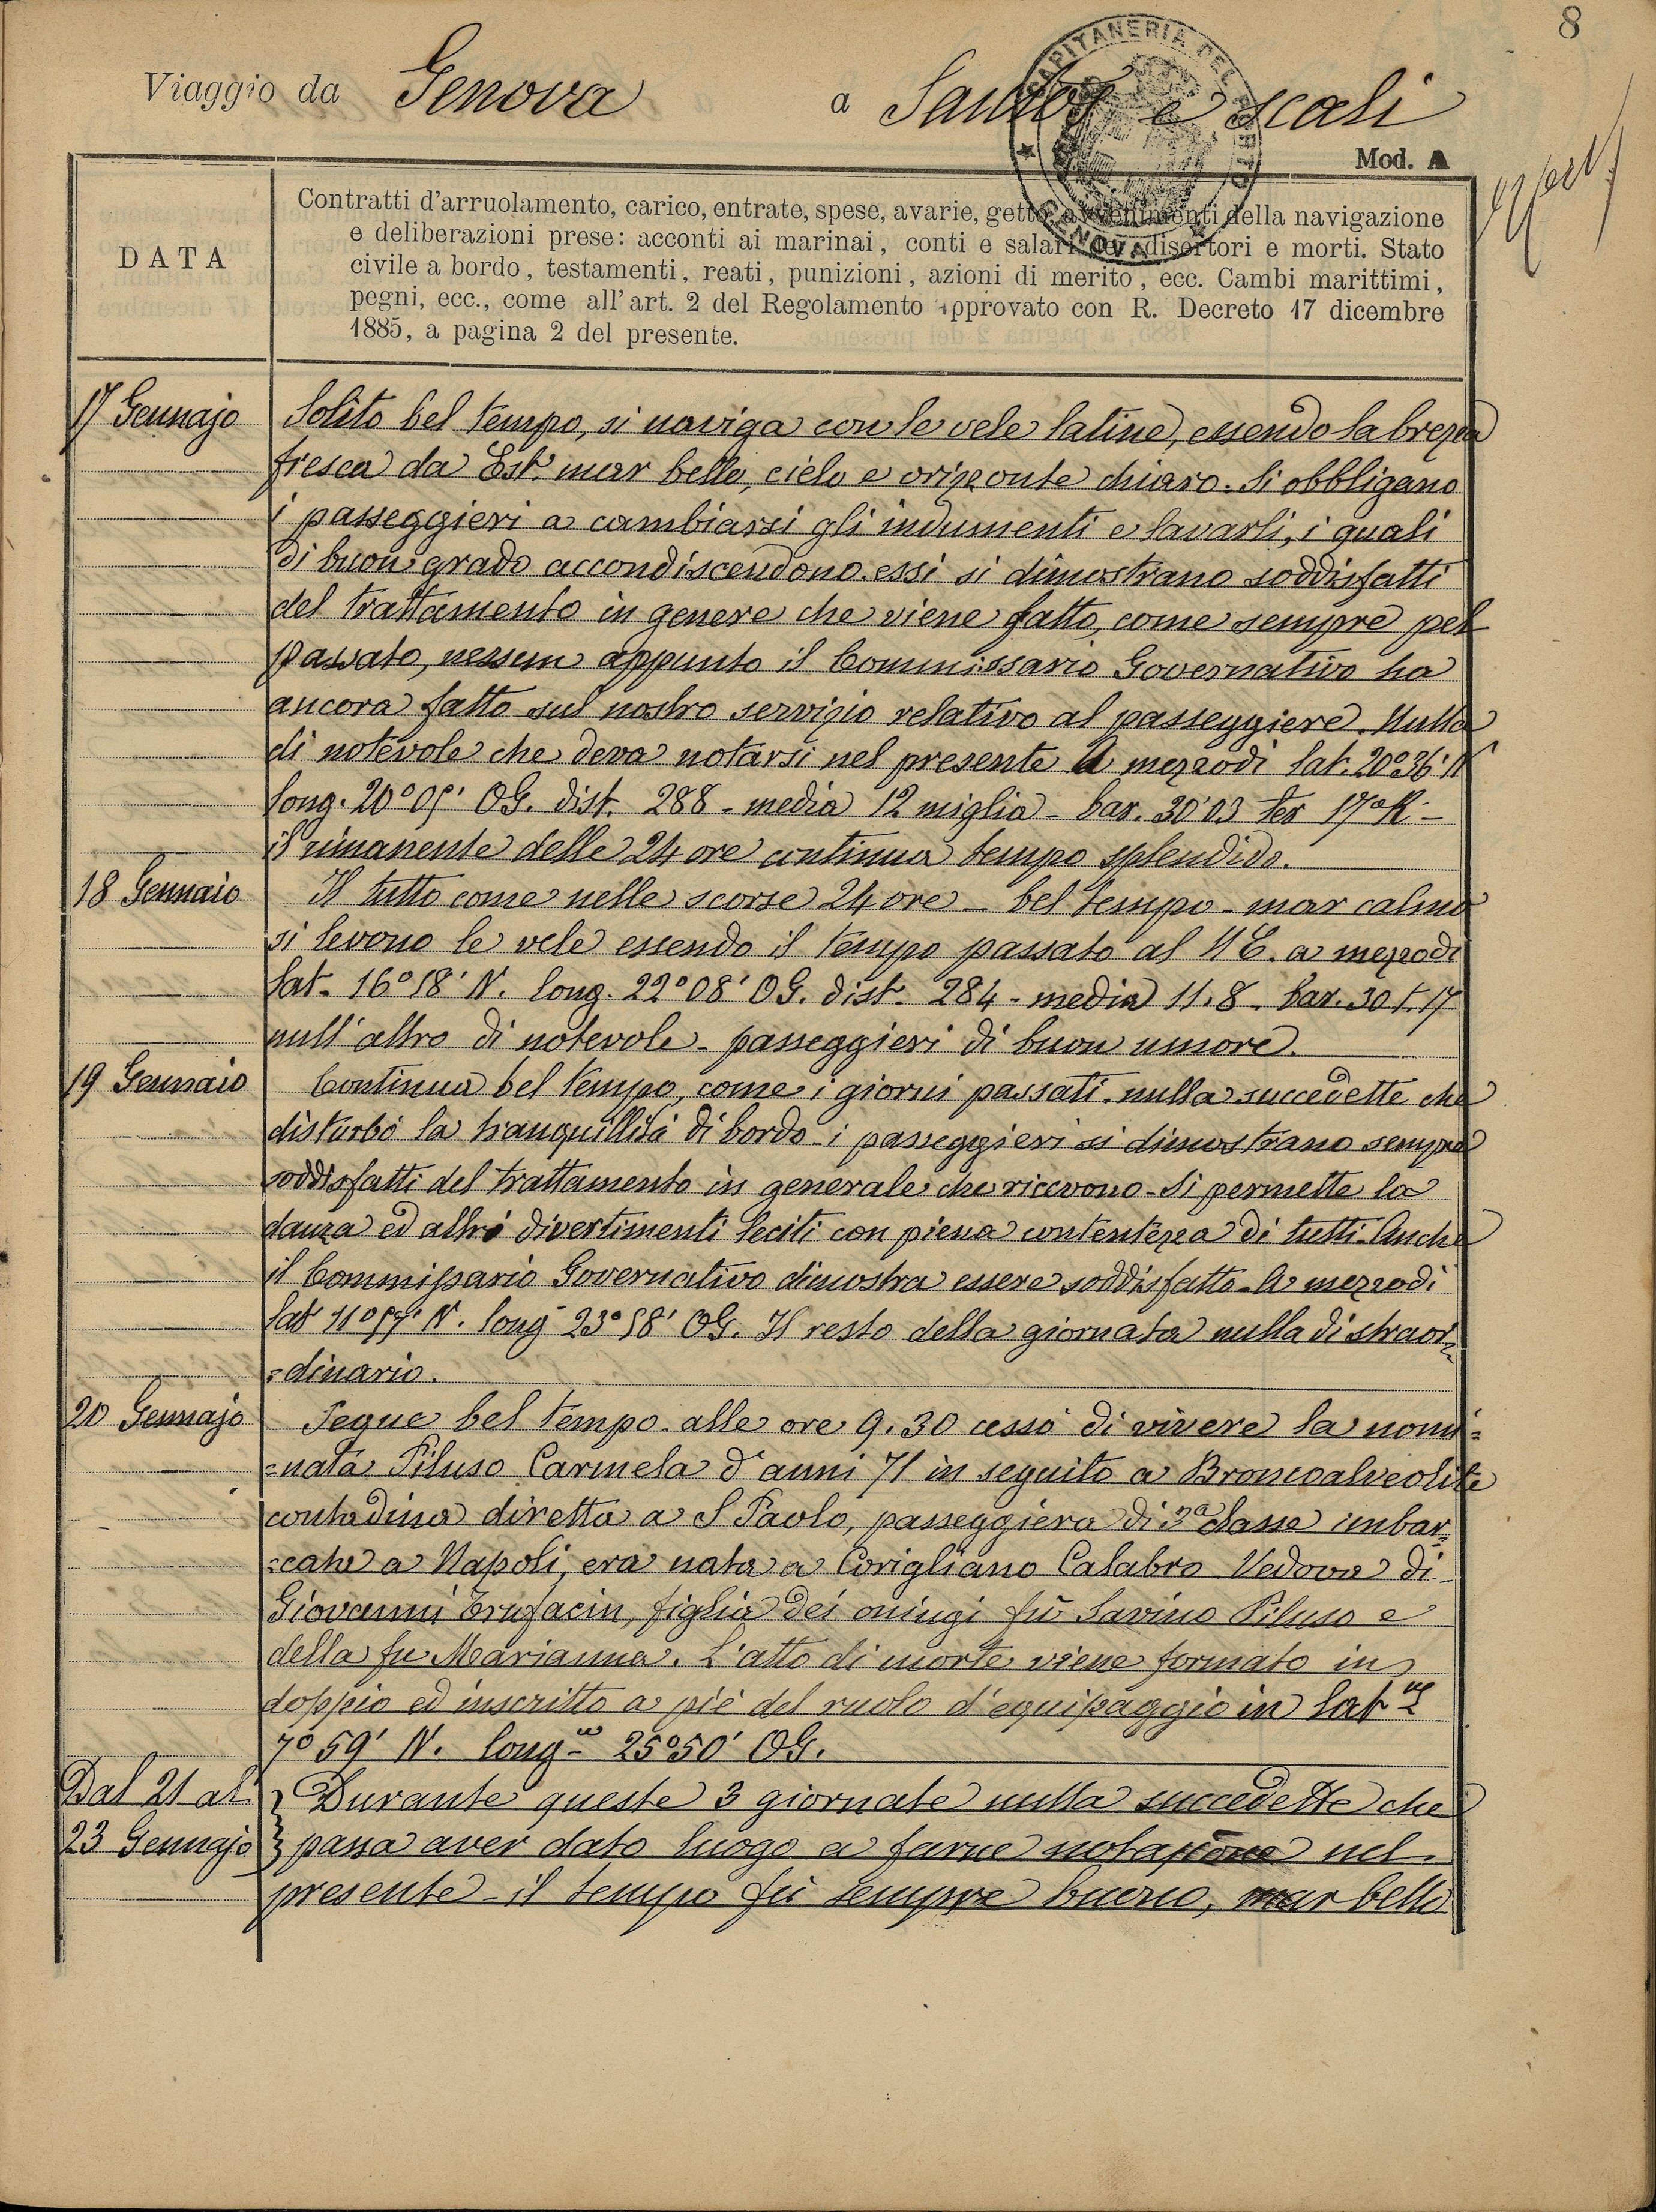 8
Viaggio da Genova a Santos e scali
CAPITANERIA DEL PORTO
GENOVA
Mod. A
DATA
Contratti d'arruolamento, carico, entrate, spese, avarie, getto, avvenimenti della navigazione
e deliberazioni prese: acconti ai marinai, conti e salari dei disertori e morti. Stato
civile a bordo, testamenti, reati, punizioni, azioni di merito, ecc. Cambi marittimi,
pegni, ecc., come all'art. 2 del Regolamento approvato con R. Decreto 17 dicembre
1885, a pagina 2 del presente.
17 Gennajo Solito bel tempo, si naviga con le vele latine, essendo la brezza
fresca da Est. mar bello, cielo e orizzonte chiaro. Si obbligano
i passeggieri a cambiarsi gli indumenti e lavarli, i quali
di buon grado accondiscendono. essi si dimostrano soddisfatti
del trattamento in genere che viene fatto, come sempre pel
passato, nessun appunto il Commissario Governativo ha
ancora fatto sul nostro servizio relativo al passeggiere. Nulla
di notevole che deva notarsi nel presente A mezzodi lat. 20°36' N
long. 20°05' OG. dist. 288 - media 12 miglia - bar. 30'03 ter 17° R -
il rimanente delle 24 ore continua tempo splendido.
18 Gennaio Il tutto come nelle scorse 24 ore - bel tempo - mar calmo
si levono le vele essendo il tempo passato al NE. a mezzodi
lat. 16°18' N. long. 22°08' OG. dist. 284 - media 11.8. bar. 30 t. 17
null'altro di notevole - passeggieri di buon umore.
19 Gennaio Continua bel tempo, come i giorni passati. nulla succedette che
disturbò la tranquillità di bordo - i passeggieri si dimostrano sempre
soddisfatti del trattamento in generale che ricevono - Si permette la
danza ed altri divertimenti leciti con piena contentezza di tutti - Anche
il Commissario Governativo dimostra essere soddisfatto - A mezzodi
lat 11°57' N. long 23°58' OG. Il resto della giornata nulla di straor=
=dinario.
20 Gennajo Segue bel tempo - alle ore 9.30 cessò di vivere la nomi=
=nata Piluso Carmela d'anni 71 in seguito a Broncoalveolite
contadina diretta a S Paolo, passeggiera di 3a classe imbar=
=cata a Napoli, era nata a Corigliano Calabro Vedova di
Giovanni figlia dei fù Savino Piluso e
della fu Marianna. L'atto di morte viene formato in
doppio ed inscritto a piè del ruolo d'equipaggio in lat.ne
7°59' N. long.ne 25°50' OG.
Dal 21 al Durante queste 3 giornate nulla succedette che
23 Gennajo possa aver dato luogo a farne notazione nel
presente - il tempo fù sempre buono, mar bello